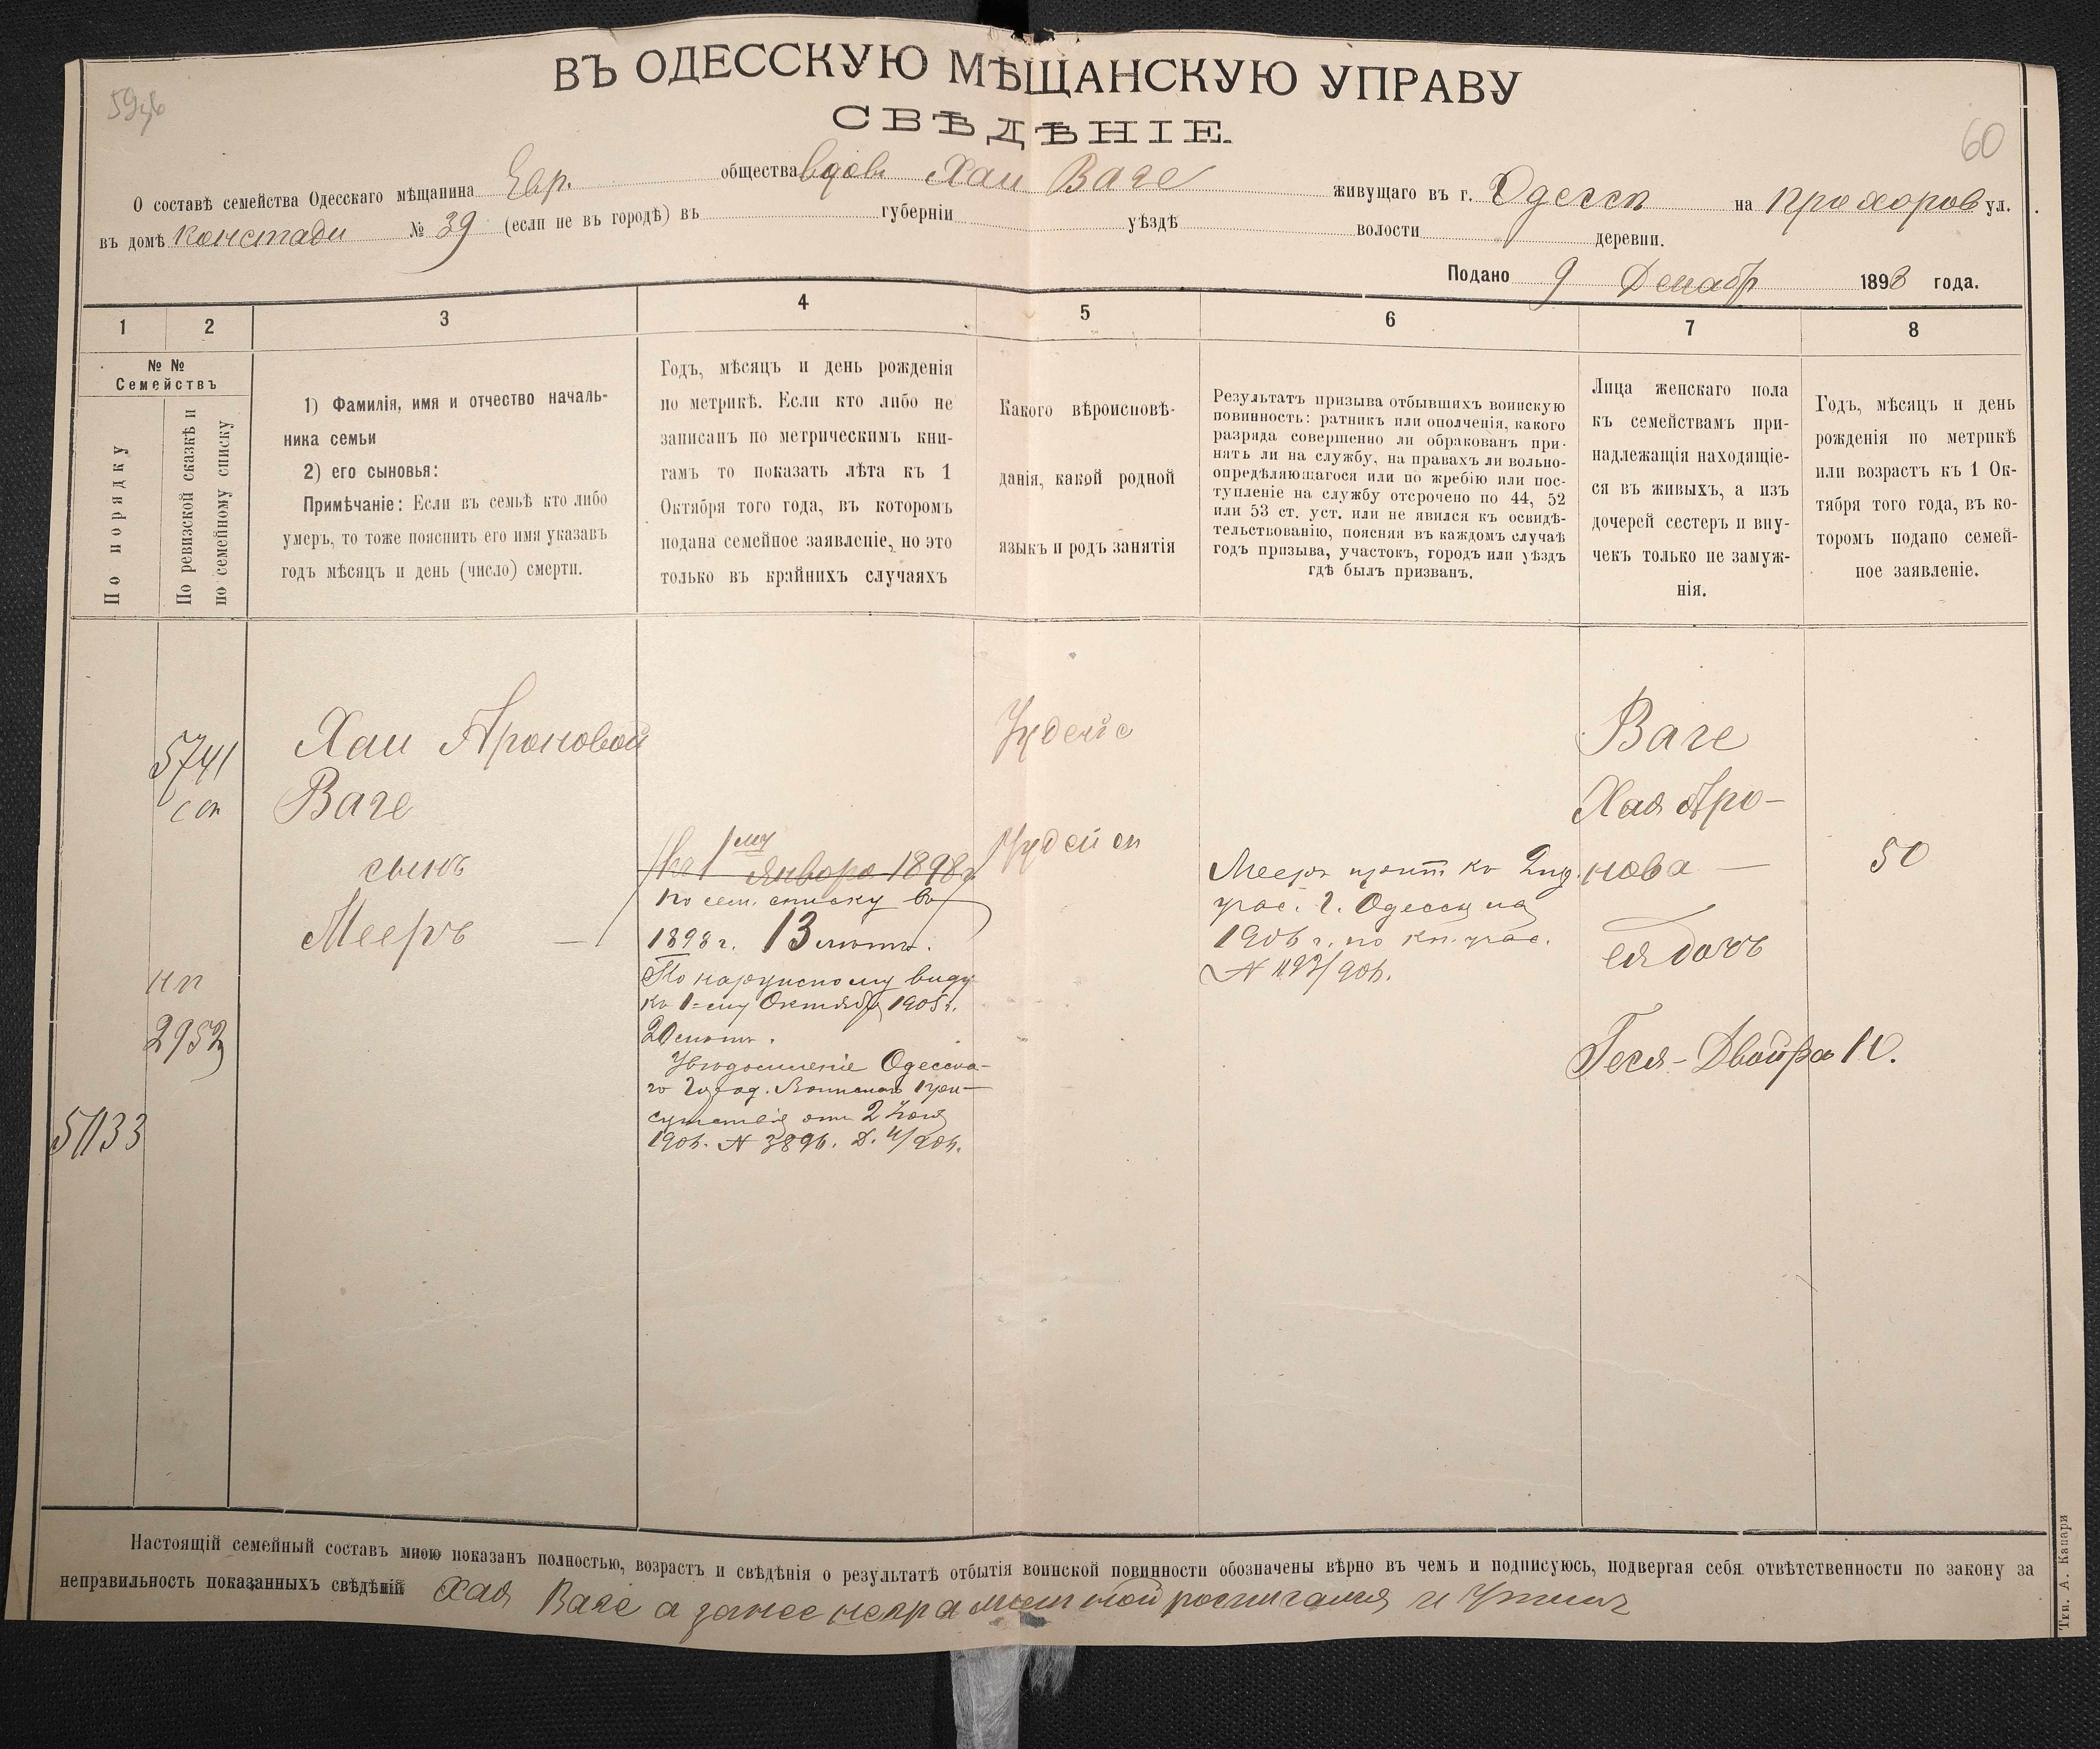 ВЪ ОДЕССКУЮ МѢЩАНСКУЮ УПРАВУ
СВѢДѢНІЕ.
60
О составѣ семейства Одесскаго мѣщанина Евр. общества вдовы Хаи Ваге живущаго въ г. Одессѣ на Прохоров ул.
въ домѣ Констади № 39 (если не въ городѣ) въ губерніи уѣздѣ волости деревни.
Подано 9 Декабр 1898 года.
1 2 3 4 5 6 7 8
№ №
Семействъ
По порядку
По ревизской сказкѣ и
по семейному списку
1) Фамилія, имя и отчество началь-
ника семьи
2) его сыновья:
Примѣчаніе: Если въ семьѣ кто либо
умеръ, то тоже пояснить его имя указавъ
годъ мѣсяцъ и день (число) смерти.
Годъ, мѣсяцъ и день рожденія
по метрикѣ. Если кто либо не
записанъ по метрическимъ кни-
гамъ то показать лѣта къ 1
Октября того года, въ которомъ
подана семейное заявленіе, но это
только въ крайнихъ случаяхъ
Какого вѣроисповѣ-
данія, какой родной
языкъ и родъ занятія
Результатъ призыва отбывшихъ воинскую
повинность: ратникъ или ополченія, какого
разряда совершенно ли обракованъ при-
нять ли на службу, на правахъ ли вольно-
опредѣляющагося или по жребію или пос-
тупленіе на службу отсрочено по 44, 52
или 53 ст. уст. или не явился къ освидѣ-
тельствованію, поясняя въ каждомъ случаѣ
годъ призыва, участокъ, городъ или уѣздъ
гдѣ былъ призванъ.
Лица женскаго пола
къ семействамъ при-
надлежащія находящіе-
ся въ живыхъ, а изъ
дочерей сестеръ и вну-
чекъ только не замуж-
нія.
Годъ, мѣсяцъ и день
рожденія по метрикѣ
или возрастъ къ 1 Ок-
тября того года, въ ко-
торомъ подано семей-
ное заявленіе.
5741
сп
нп
2952
5133
Хаи Ароновой
Ваге
сынъ
Мееръ
На 1 Января 1898 г.
по сем. списку въ
1898 г. 13 лѣтъ.
По наружному виду
къ 1-му Октября 1905 г.
20 лѣтъ.
Увѣдомленіе Одесска-
го Город. Воинскаго При-
сутствія отъ 2
190 № 3896.
Іудейс
Іудейск
Мееръ къ 2
учас. г. Одессы на
1906 г. по кн. учас.
Ваге
Хая Аро-
нова
50
ея дочь
Геся-Двойра 10.
Настоящій семейный составъ мною показанъ полностью, возрастъ и свѣдѣнія о результатѣ отбытія воинской повинности обозначены вѣрно въ чемъ и подписуюсь, подвергая себя отвѣтственности по закону за
неправильность показанныхъ свѣдѣній Хая Ваге а за нее неграмотной
Тип. А. Капари